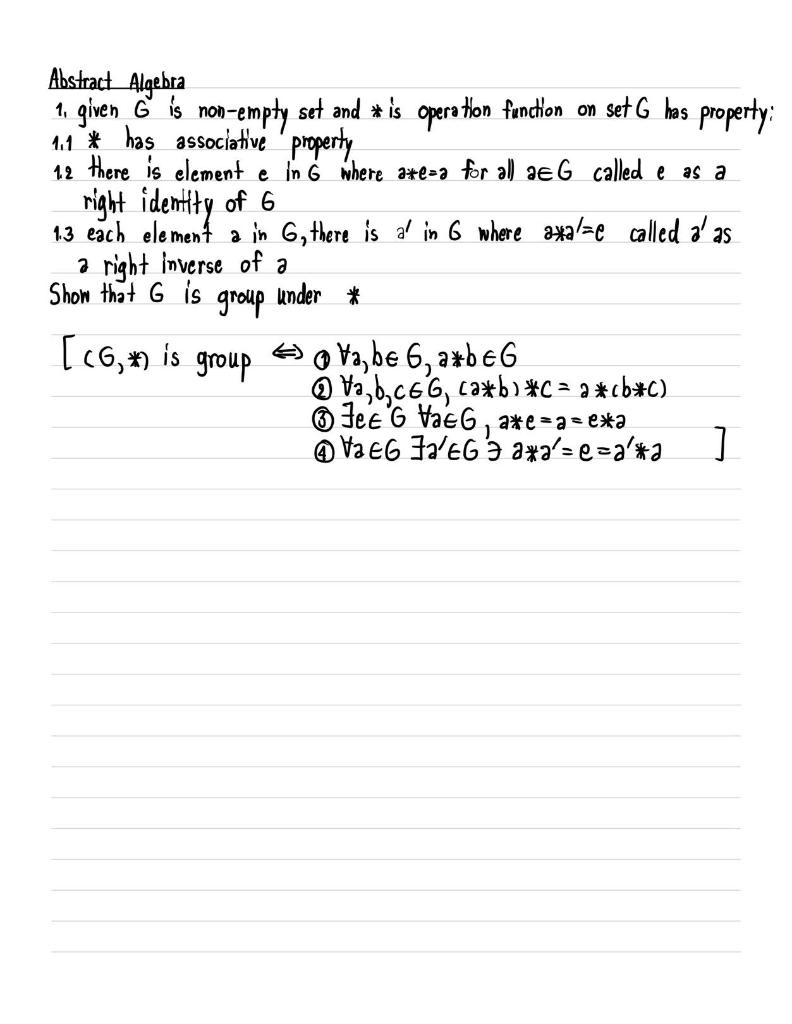 Abstract Algebra
1. given G is non-empty set and * is operation function on set G has property:
1.1 * has associative property
1.2 there is element e in G where a*e=a for all a∈G called e as a
right identity of G
1.3 each element a in G, there is a' in G where a*a'=e called a' as
a right inverse of a
Show that G is group under *
[(G,*) is group ⇔ ① ∀a,b∈G, a*b∈G
② ∀a,b,c∈G, (a*b)*c = a*(b*c)
③ ∃e∈G ∀a∈G, a*e=a=e*a
④ ∀a∈G ∃a'∈G ∋ a*a'=e=a'*a ]